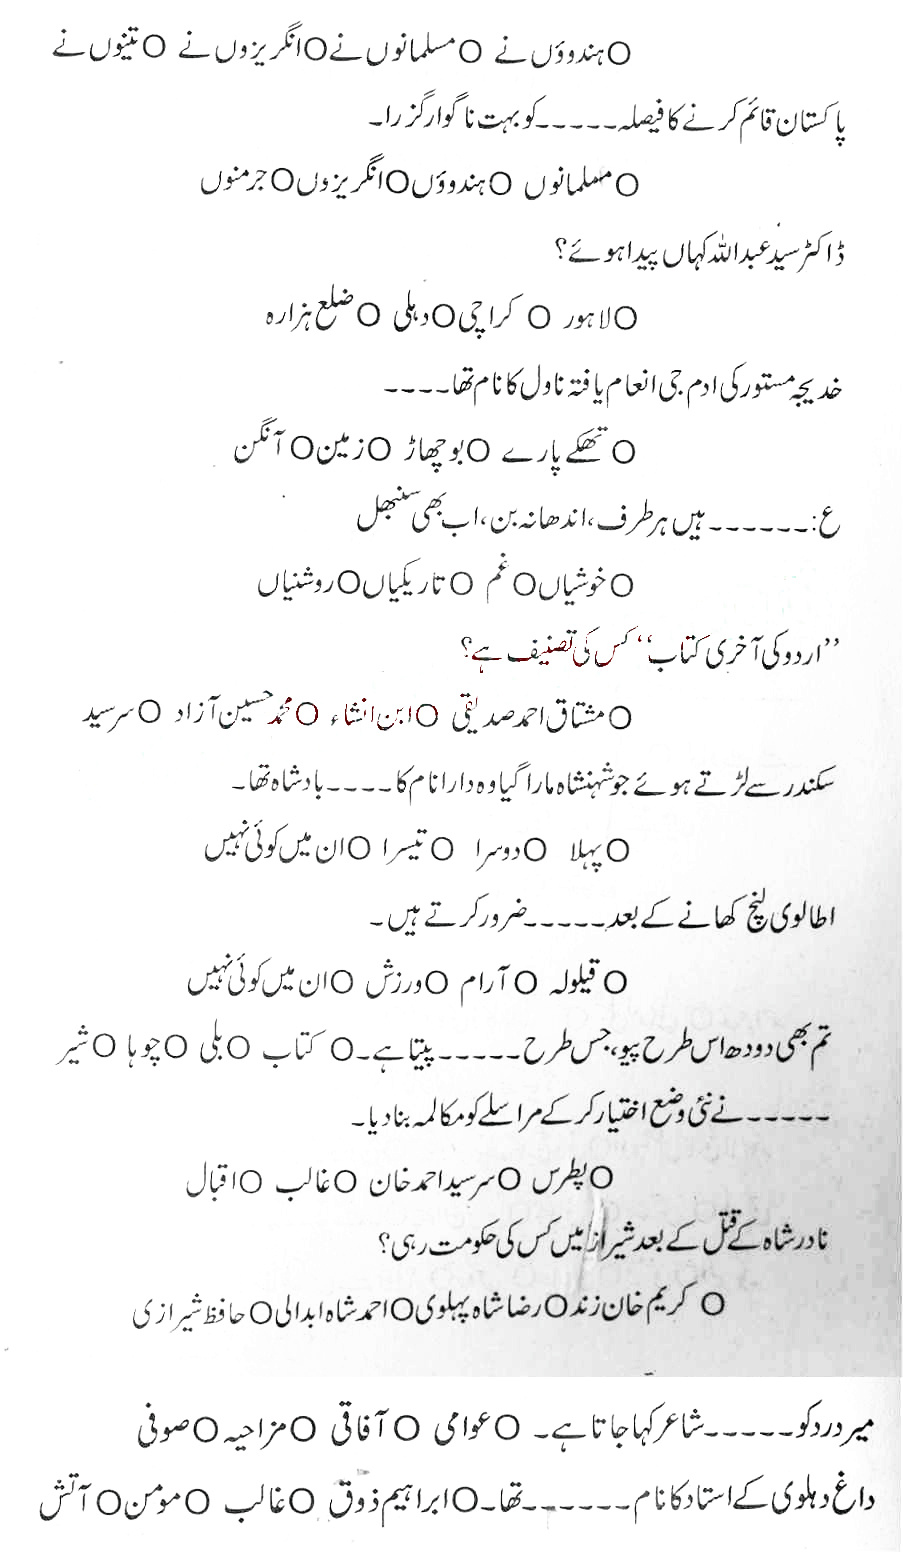 ○ہندوؤں نے ○مسلمانوں نے○انگریزوں نے ○تینوں نے
پاکستان قائم کرنے کا فیصلہ-----کو بہت ناگوار گزرا۔
○مسلمانوں ○ہندوؤں○انگریزوں○جرمنوں
ڈاکٹر سید عبداللہ کہاں پیدا ہوئے؟
○لاہور ○ کراچی○دہلی ○ضلع ہزارہ
خدیجہ مستور کی ادم جی انعام یافتہ ناول کا نام تھا----
○ تھکے ہارے ○بوچھاڑ ○زمین○آنگن
ع:------ہیں ہر طرف، اندھا نہ بن، اب بھی سنبھل
○خوشیاں○غم ○تاریکیاں○روشنیاں
’’اردو کی آخری کتاب‘‘ کس کی تصنیف ہے؟
○مشتاق احمد صدیقی ○ابن انشاء ○محمد حسین آزاد ○سرسید
سکندر سے لڑتے ہوئے جو شہنشاہ مارا گیا وہ دارا نام کا----بادشاہ تھا۔
○پہلا ○دوسرا ○تیسرا ○ان میں کوئی نہیں
اطالوی لنچ کھانے کے بعد-----ضرور کرتے ہیں۔
○قیلولہ ○آرام ○ورزش ○ان میں کوئی نہیں
تم بھی دودھ اس طرح پیو، جس طرح-----پیتا ہے۔○ کتاب ○بلی ○چوہا ○شیر
-----نے نئی وضع اختیار کر کے مراسلے کو مکالمہ بنا دیا۔
○پطرس ○سرسید احمد خان ○غالب ○اقبال
نادر شاہ کے قتل کے بعد شیراز میں کس کی حکومت رہی؟
○ کریم خان زند○رضا شاہ پہلوی○احمد شاہ ابدالی○حافظ شیرازی
میر درد کو-----شاعر کہا جاتا ہے۔ ○عوامی ○آفاقی ○مزاحیہ ○صوفی
داغ دہلوی کے استاد کا نام------تھا۔○ابراہیم ذوق ○غالب ○مومن○آتش